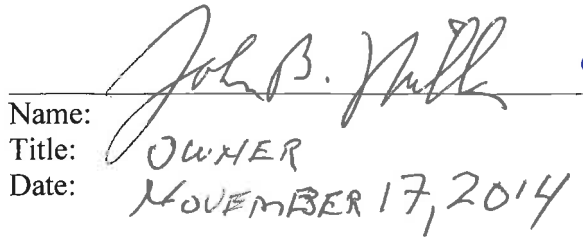 John B.
Name:
Title: OWNER
Date: NOVEMBER 17, 2014